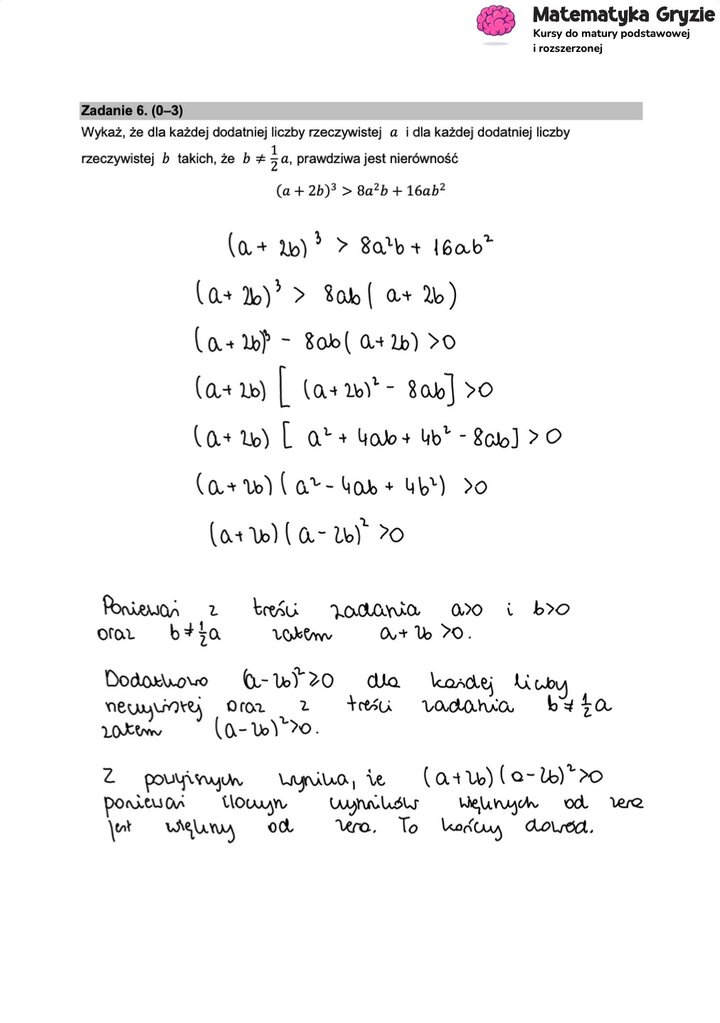 Matematyka Gryzie
Kursy do matury podstawowej
i rozszerzonej
Zadanie 6. (0–3)
Wykaż, że dla każdej dodatniej liczby rzeczywistej a i dla każdej dodatniej liczby
rzeczywistej b takich, że b ≠ 1/2 a, prawdziwa jest nierówność
(a + 2b)³ > 8a²b + 16ab²
(a + 2b)³ > 8a²b + 16ab²
(a + 2b)³ > 8ab(a + 2b)
(a + 2b)³ - 8ab(a + 2b) > 0
(a + 2b) [(a + 2b)² - 8ab] > 0
(a + 2b) [a² + 4ab + 4b² - 8ab] > 0
(a + 2b)(a² - 4ab + 4b²) > 0
(a + 2b)(a - 2b)² > 0
Ponieważ z treści zadania a>0 i b>0
oraz b ≠ 1/2 a zatem a + 2b > 0.
Dodatkowo (a - 2b)² ≥ 0 dla każdej liczby
rzeczywistej oraz z treści zadania b ≠ 1/2 a
zatem (a - 2b)² > 0.
Z powyższych wynika, że (a + 2b)(a - 2b)² > 0
ponieważ iloczyn czynników większych od zera
jest większy od zera. To kończy dowód.